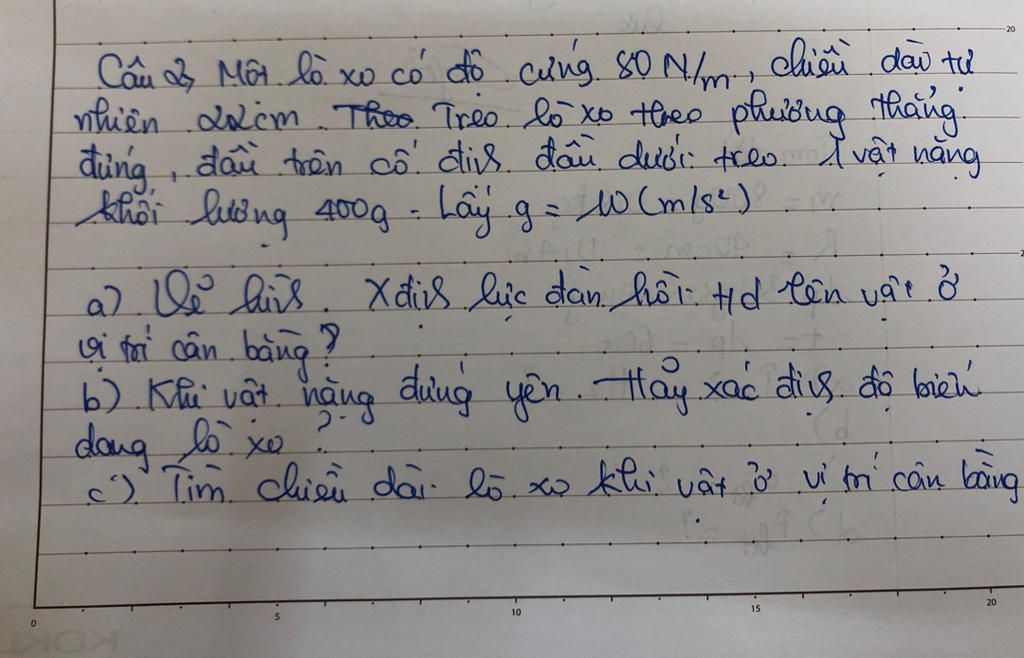 Câu 2, Một lò xo có độ cứng 80 N/m, chiều dài tự
nhiên 22cm. Theo Treo lò xo theo phương thẳng
đứng, đầu trên cố địn đầu dưới treo 1 vật nặng
khối lượng 400g. Lấy g = 10 (m/s²)
a) Vẽ hình. Xđịn lực đàn hồi t/d lên vật ở
vị trí cân bằng?
b) Khi vật nặng đứng yên. Hãy xác địn độ biến
dạng lò xo?
c) Tìm chiều dài lò xo khi vật ở vị trí cân bằng
20
0 5 10 15 20